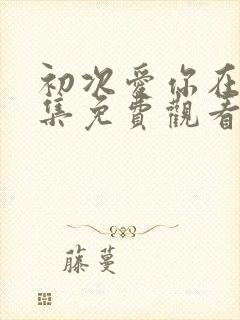 初次愛你在
集免費觀看
藤蔓